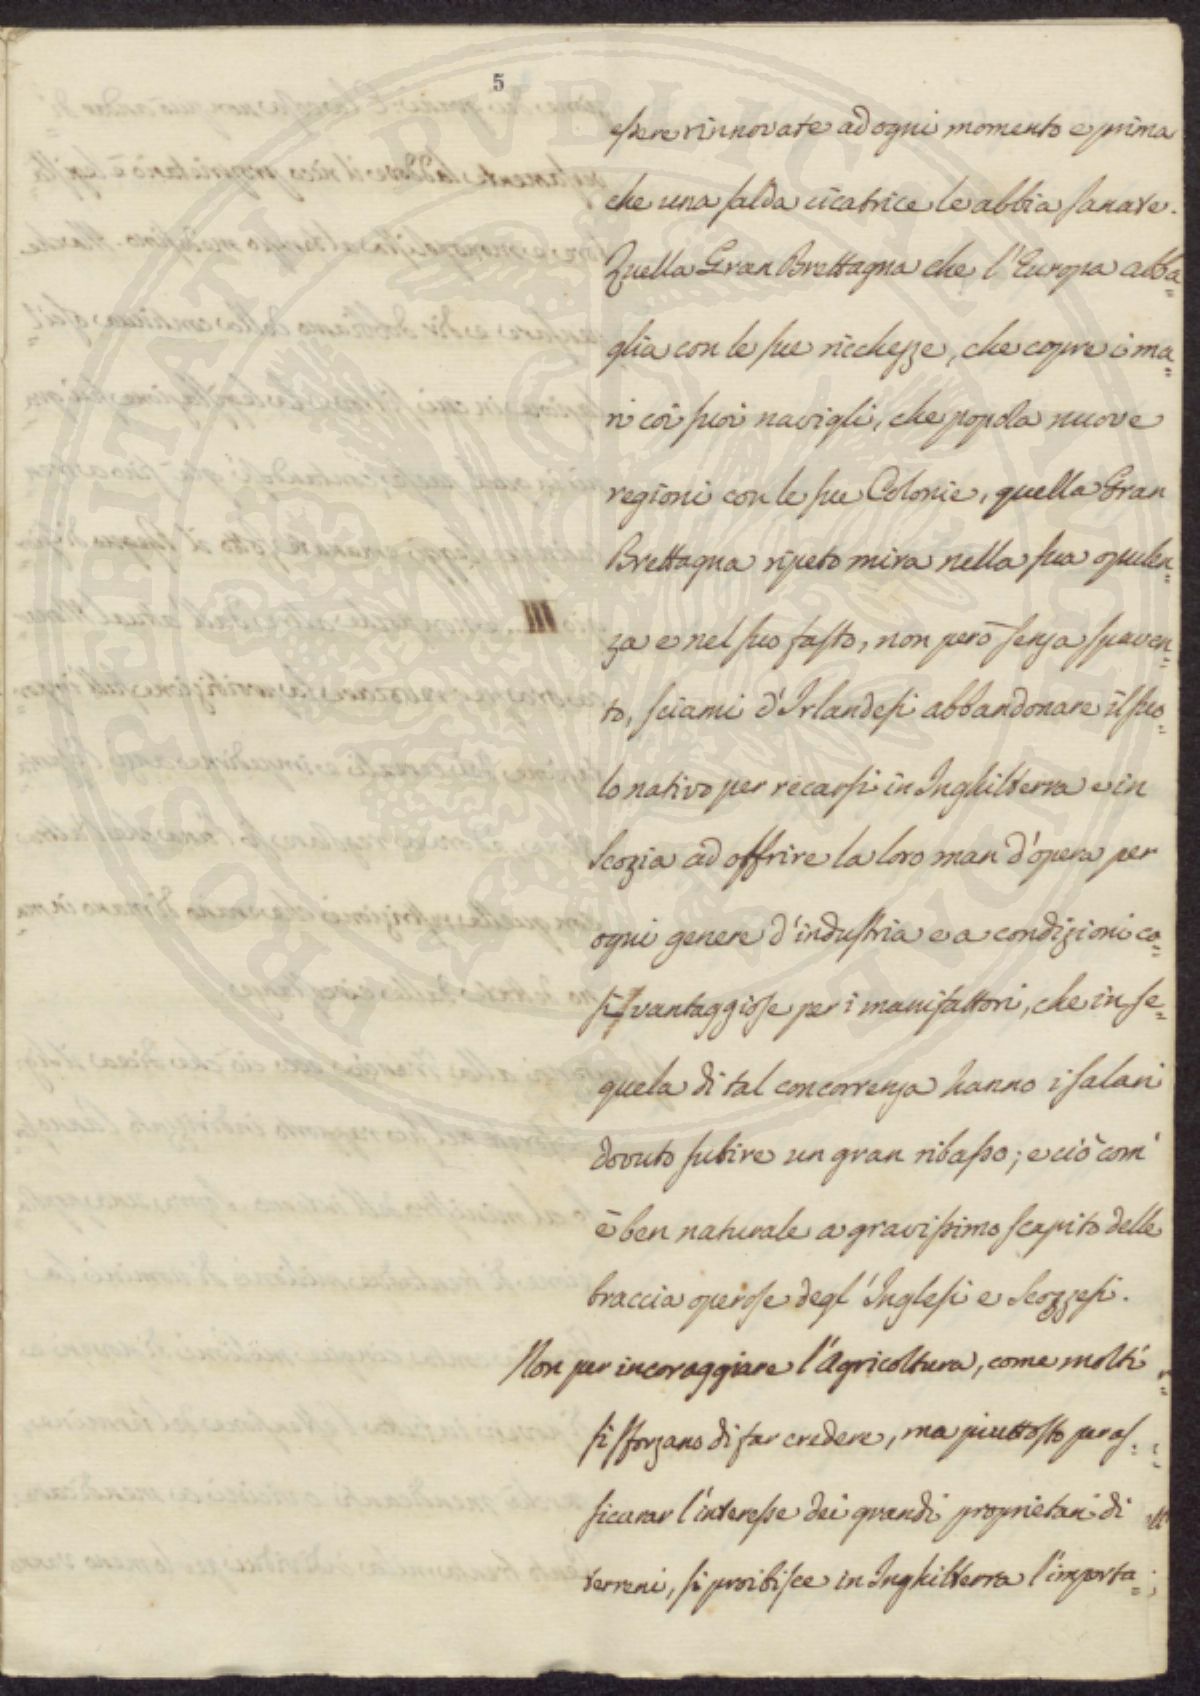 5
essere rinnovate ad ogni momento e prima
che una salda cicatrice le abbia sanate.
Quella Gran Brettagna che l'Europa abba=
glia con le sue ricchezze, che copre i ma=
ri coi suoi navigli, che popola nuove
regioni con le sue Colonie, quella Gran
Brettagna ripeto mira nella sua opulen=
za e nel suo fasto, non però senza spaven=
to, sciami d'Irlandesi abbandonare il suo=
lo nativo per recarsi in Inghilterra e in
Scozia ad offrire la loro man d'opera per
ogni genere d'industria e a condizioni co=
sì vantaggiose per i manifattori, che in se=
quela di tal concorrenza hanno i salari
dovuto subire un gran ribasso; e ciò com'
è ben naturale a gravissimo scapito delle
braccia operose degl'Inglesi e Scozzesi.
Non per incoraggiare l'Agricoltura, come molti
si sforzano di far credere, ma piuttosto per as=
sicurar l'interesse dei grandi proprietari di
terreni, si proibisce in Inghilterra l'importa=
PROSPERITATI PVBLICAE